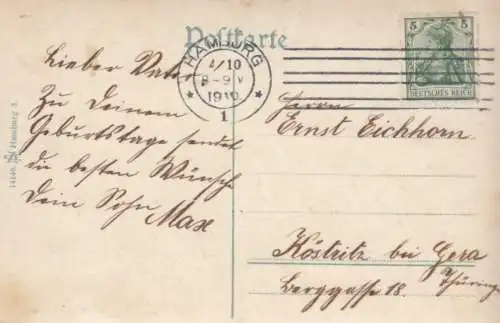 Postkarte
HAMBURG
1/10
8-9 V
1910
1
5 5
DEUTSCHES REICH
Lieber Vater
Zu Deinem
Geburtstage sendet
die besten Wünsche
Dein Sohn Max
Herrn
Ernst Eichhorn
Köstritz bei Gera
Berggasse 18. Thüringen
Hamburg 3.